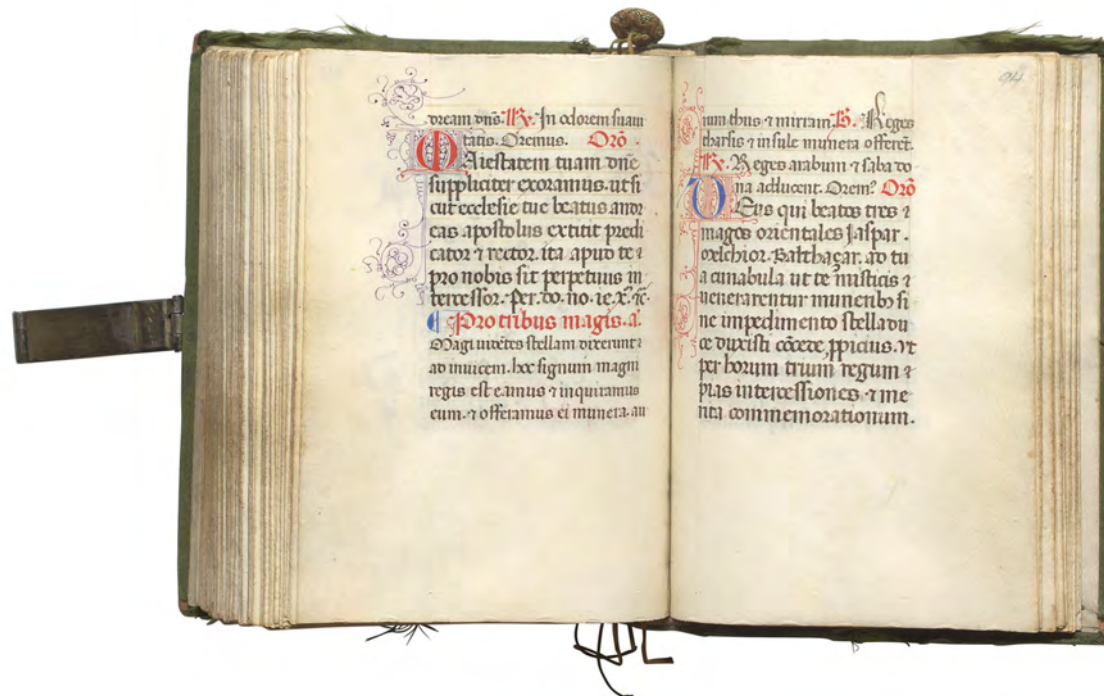 dream dn̄s. ℟. In odorem suaui
tatis. Oremus. Orō.
Maiestatem tuam dn̄e
suppliciter exoramus. ut si
cut ecclesie tue beatus andr
eas apostolus extitit predi
cator ⁊ rector. ita apud te ⁊
pro nobis sit perpetuus in
tercessor. per. do. no. ie. x̄. ⁊c̄.
¶ Pro tribus magis. a.
Magi uidētes stellam dixerunt ⁊
ad inuicem. hoc signum magni
regis est eamus ⁊ inquiramus
eum. ⁊ offeramus ei munera. au
94
rum thus ⁊ mirram. ℣. Reges
tharsis ⁊ insule munera offerēt.
℟. Reges arabum ⁊ saba do
na adducent. Orem? Orō
Deus qui beatos tres ⁊
magos orientales Jaspar.
melchior. Balthaçar. ad tu
a cunabula ut te misticis ⁊
uenerarentur munerib; si
ne impedimento stella du
ce duxisti cōcede, ppicius. ut
per horum trium regum ⁊
pias intercessiones ⁊ me
rita commemorationum.